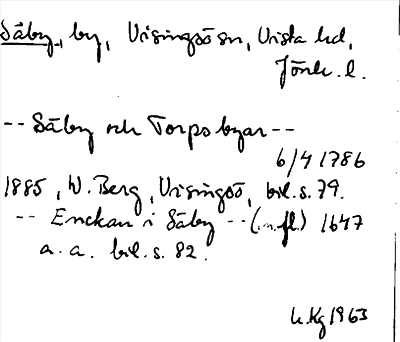 Säby, by, Visingsö sn, Vista hd,
Jönk. l.
-- Säby och Torpo byar --
6/4 1786
1885, W. Berg, Visingsö, bil. s. 79.
-- Enckan i Säby -- (m.fl.) 1647
a. a. bil. s. 82.
L.Kg 1963